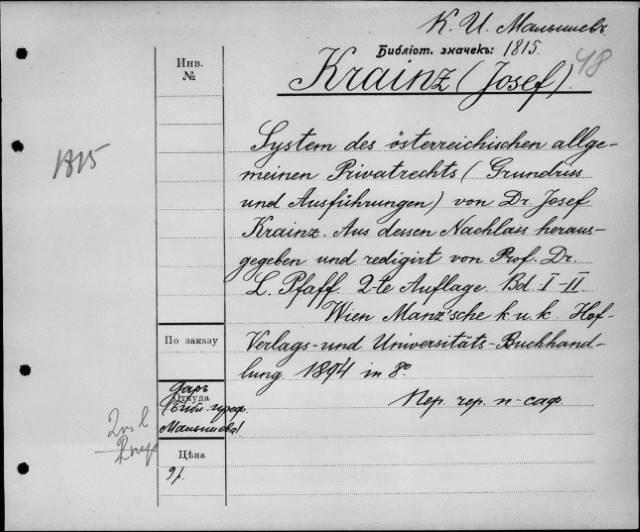 К. И. Малышевъ
Библіот. значекъ: 1815.
48
Инв.
№
Krainz (Josef).
1815
System des österreichischen allge-
meinen Privatrechts (Grundriss
und Ausführungen) von Dr. Josef
Krainz. Aus dessen Nachlass heraus-
gegeben und redigirt von Prof. Dr.
L. Pfaff. 2-te Auflage. Bd. I-II
Wien Manz'sche k. u. k. Hof-
Verlags- und Universitäts-Buchhand-
lung. 1894 in 8°
По заказу
Пер. чер. п-саф.
Даръ
Откуда
Малышева)
Цѣна
9 р.